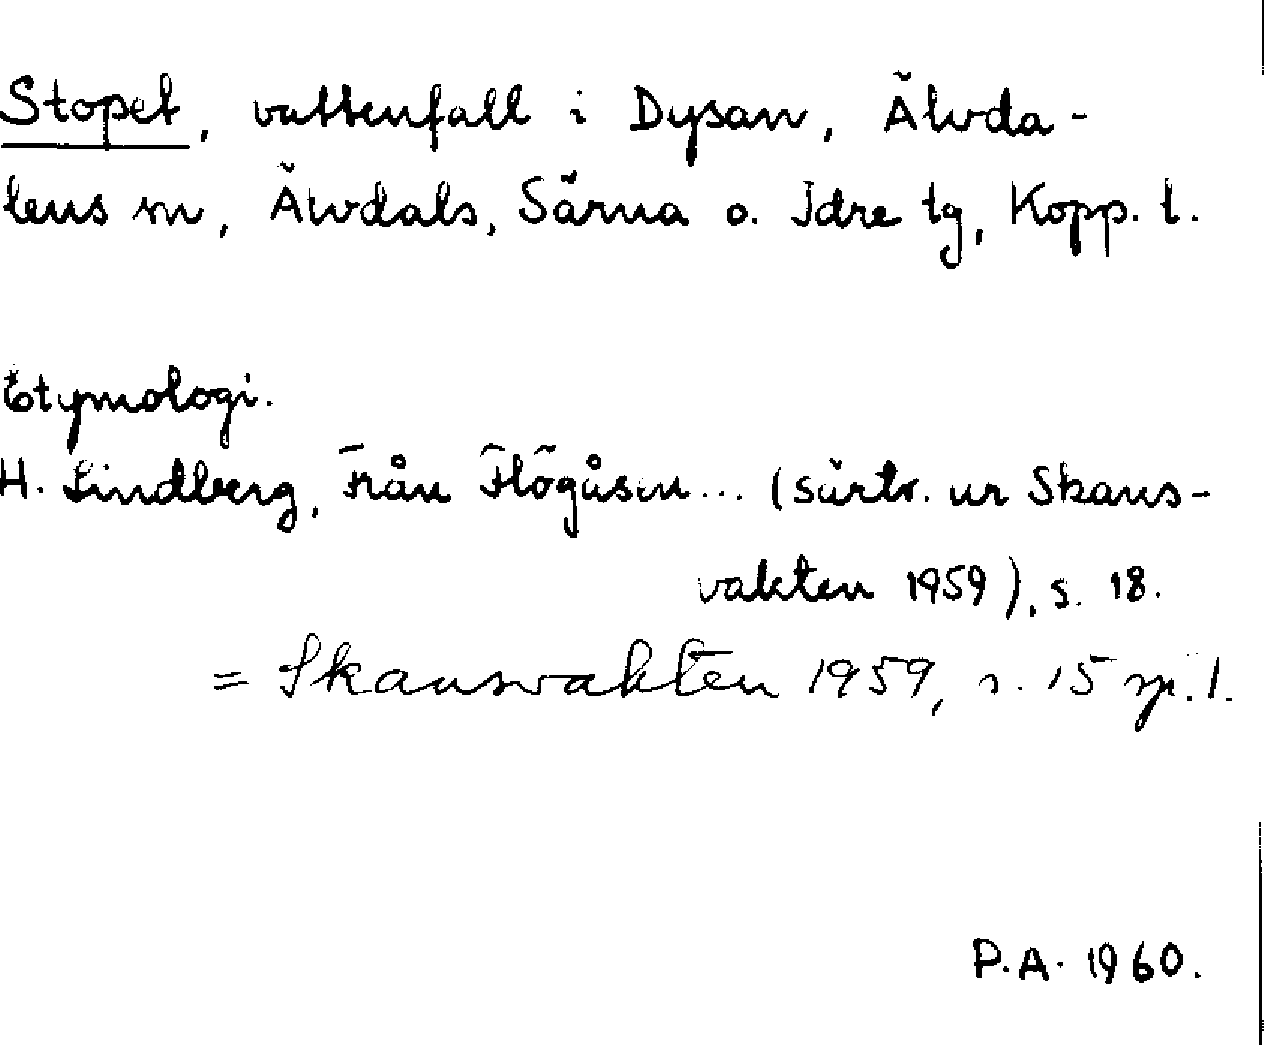 Stopet, vattenfall i Dysan, Älvda-
lens sn, Älvdals, Särna o. Idre tg, Kopp. l.
Etymologi.
H. Lindberg, Från Flögåsen... (särtr. ur Skans-
vakten 1959), s. 18.
= Skansvakten 1959, s. 15 sp. 1.
P.A. 1960.